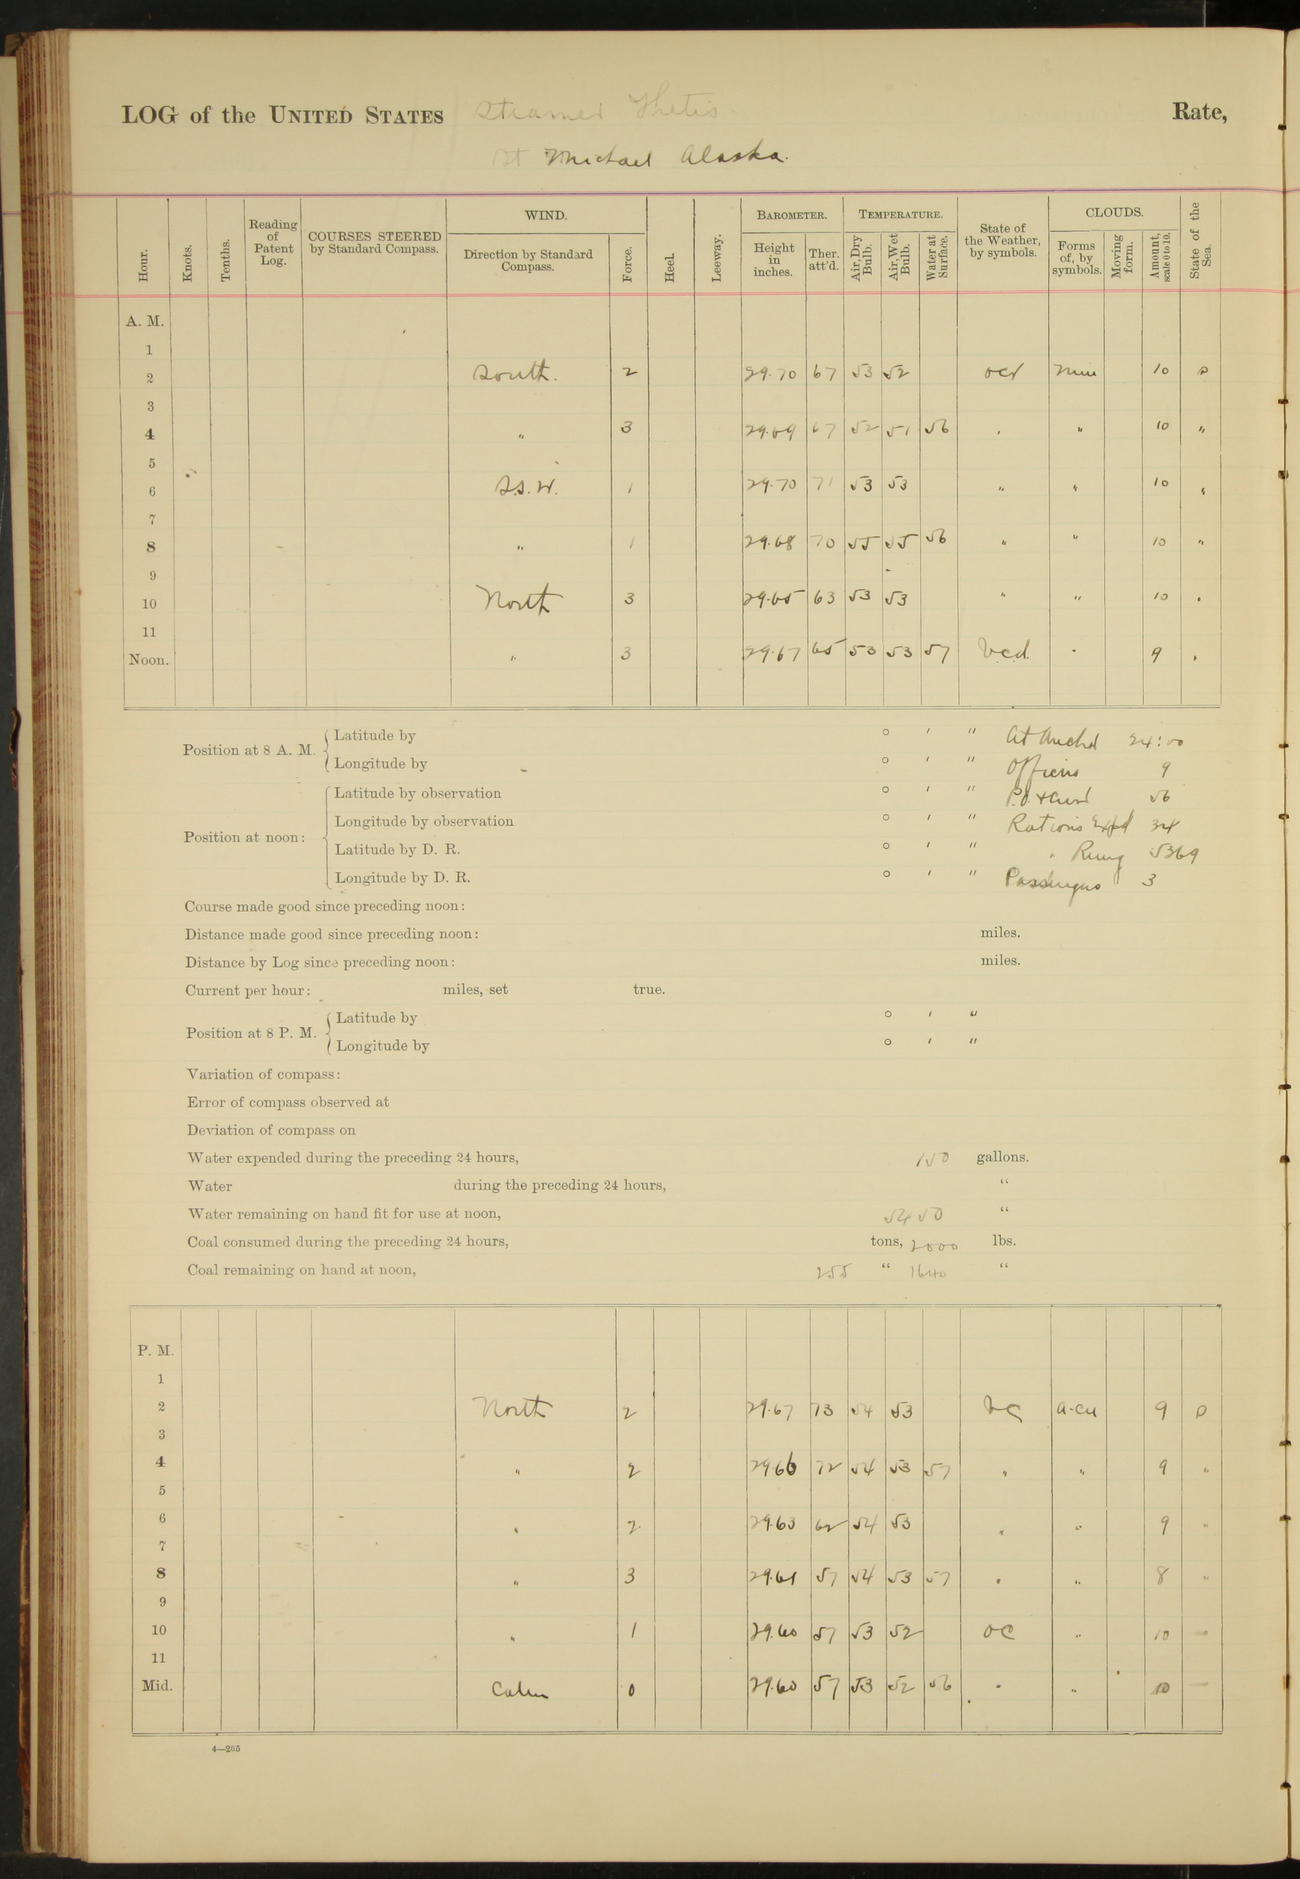 LOG of the UNITED STATES Steamer Thetis Rate,
St Michael Alaska.
Hour. Knots. Tenths. Reading of Patent Log. COURSES STEERED by Standard Compass. WIND. Direction by Standard Compass. Force. Heel. Leeway. BAROMETER. Height in inches. Ther. att'd. TEMPERATURE. Air, Dry Bulb. Air, Wet Bulb. Water at Surface. State of the Weather, by symbols. CLOUDS. Forms of, by symbols. Moving form. Amount, scale 0 to 10. State of the Sea.
A. M.
1
2 South. 2 29.70 67 53 52 ocr 10
3
4 " 3 29.69 67 52 51 56 " " 10 "
5
6 S.S.W. 1 29.70 71 53 53 " " 10 "
7
8 " 1 29.68 70 55 55 56 " " 10 "
9
10 North 3 29.65 63 53 53 " " 10 "
11
Noon. " 3 29.67 65 53 53 57 bcd " 9 "
Position at 8 A. M. Latitude by ° ′ ″ At Anchd 24:00
Longitude by ° ′ ″ Officers 9
Position at noon: Latitude by observation ° ′ ″ P.O. & Crew 56
Longitude by observation ° ′ ″ Rations Expd 34
Latitude by D. R. ° ′ ″ " Remg 5369
Longitude by D. R. ° ′ ″ Passengers 3
Course made good since preceding noon:
Distance made good since preceding noon: miles.
Distance by Log since preceding noon: miles.
Current per hour: miles, set true.
Position at 8 P. M. Latitude by ° ′ ″
Longitude by ° ′ ″
Variation of compass:
Error of compass observed at
Deviation of compass on
Water expended during the preceding 24 hours, 150 gallons.
Water during the preceding 24 hours, "
Water remaining on hand fit for use at noon, 5450 "
Coal consumed during the preceding 24 hours, tons, 2000 lbs.
Coal remaining on hand at noon, 255 " 1640 "
P. M.
1
2 North 2 29.67 73 54 53 bc a-cu 9
3
4 " 2 29.66 72 54 53 57 " " 9 "
5
6 " 2 29.63 62 54 53 " " 9 "
7
8 " 3 29.61 57 54 53 57 " " 8 "
9
10 " 1 29.60 57 53 52 oc " 10
11
Mid. Calm 0 29.60 57 53 52 56 " " 10
4—265